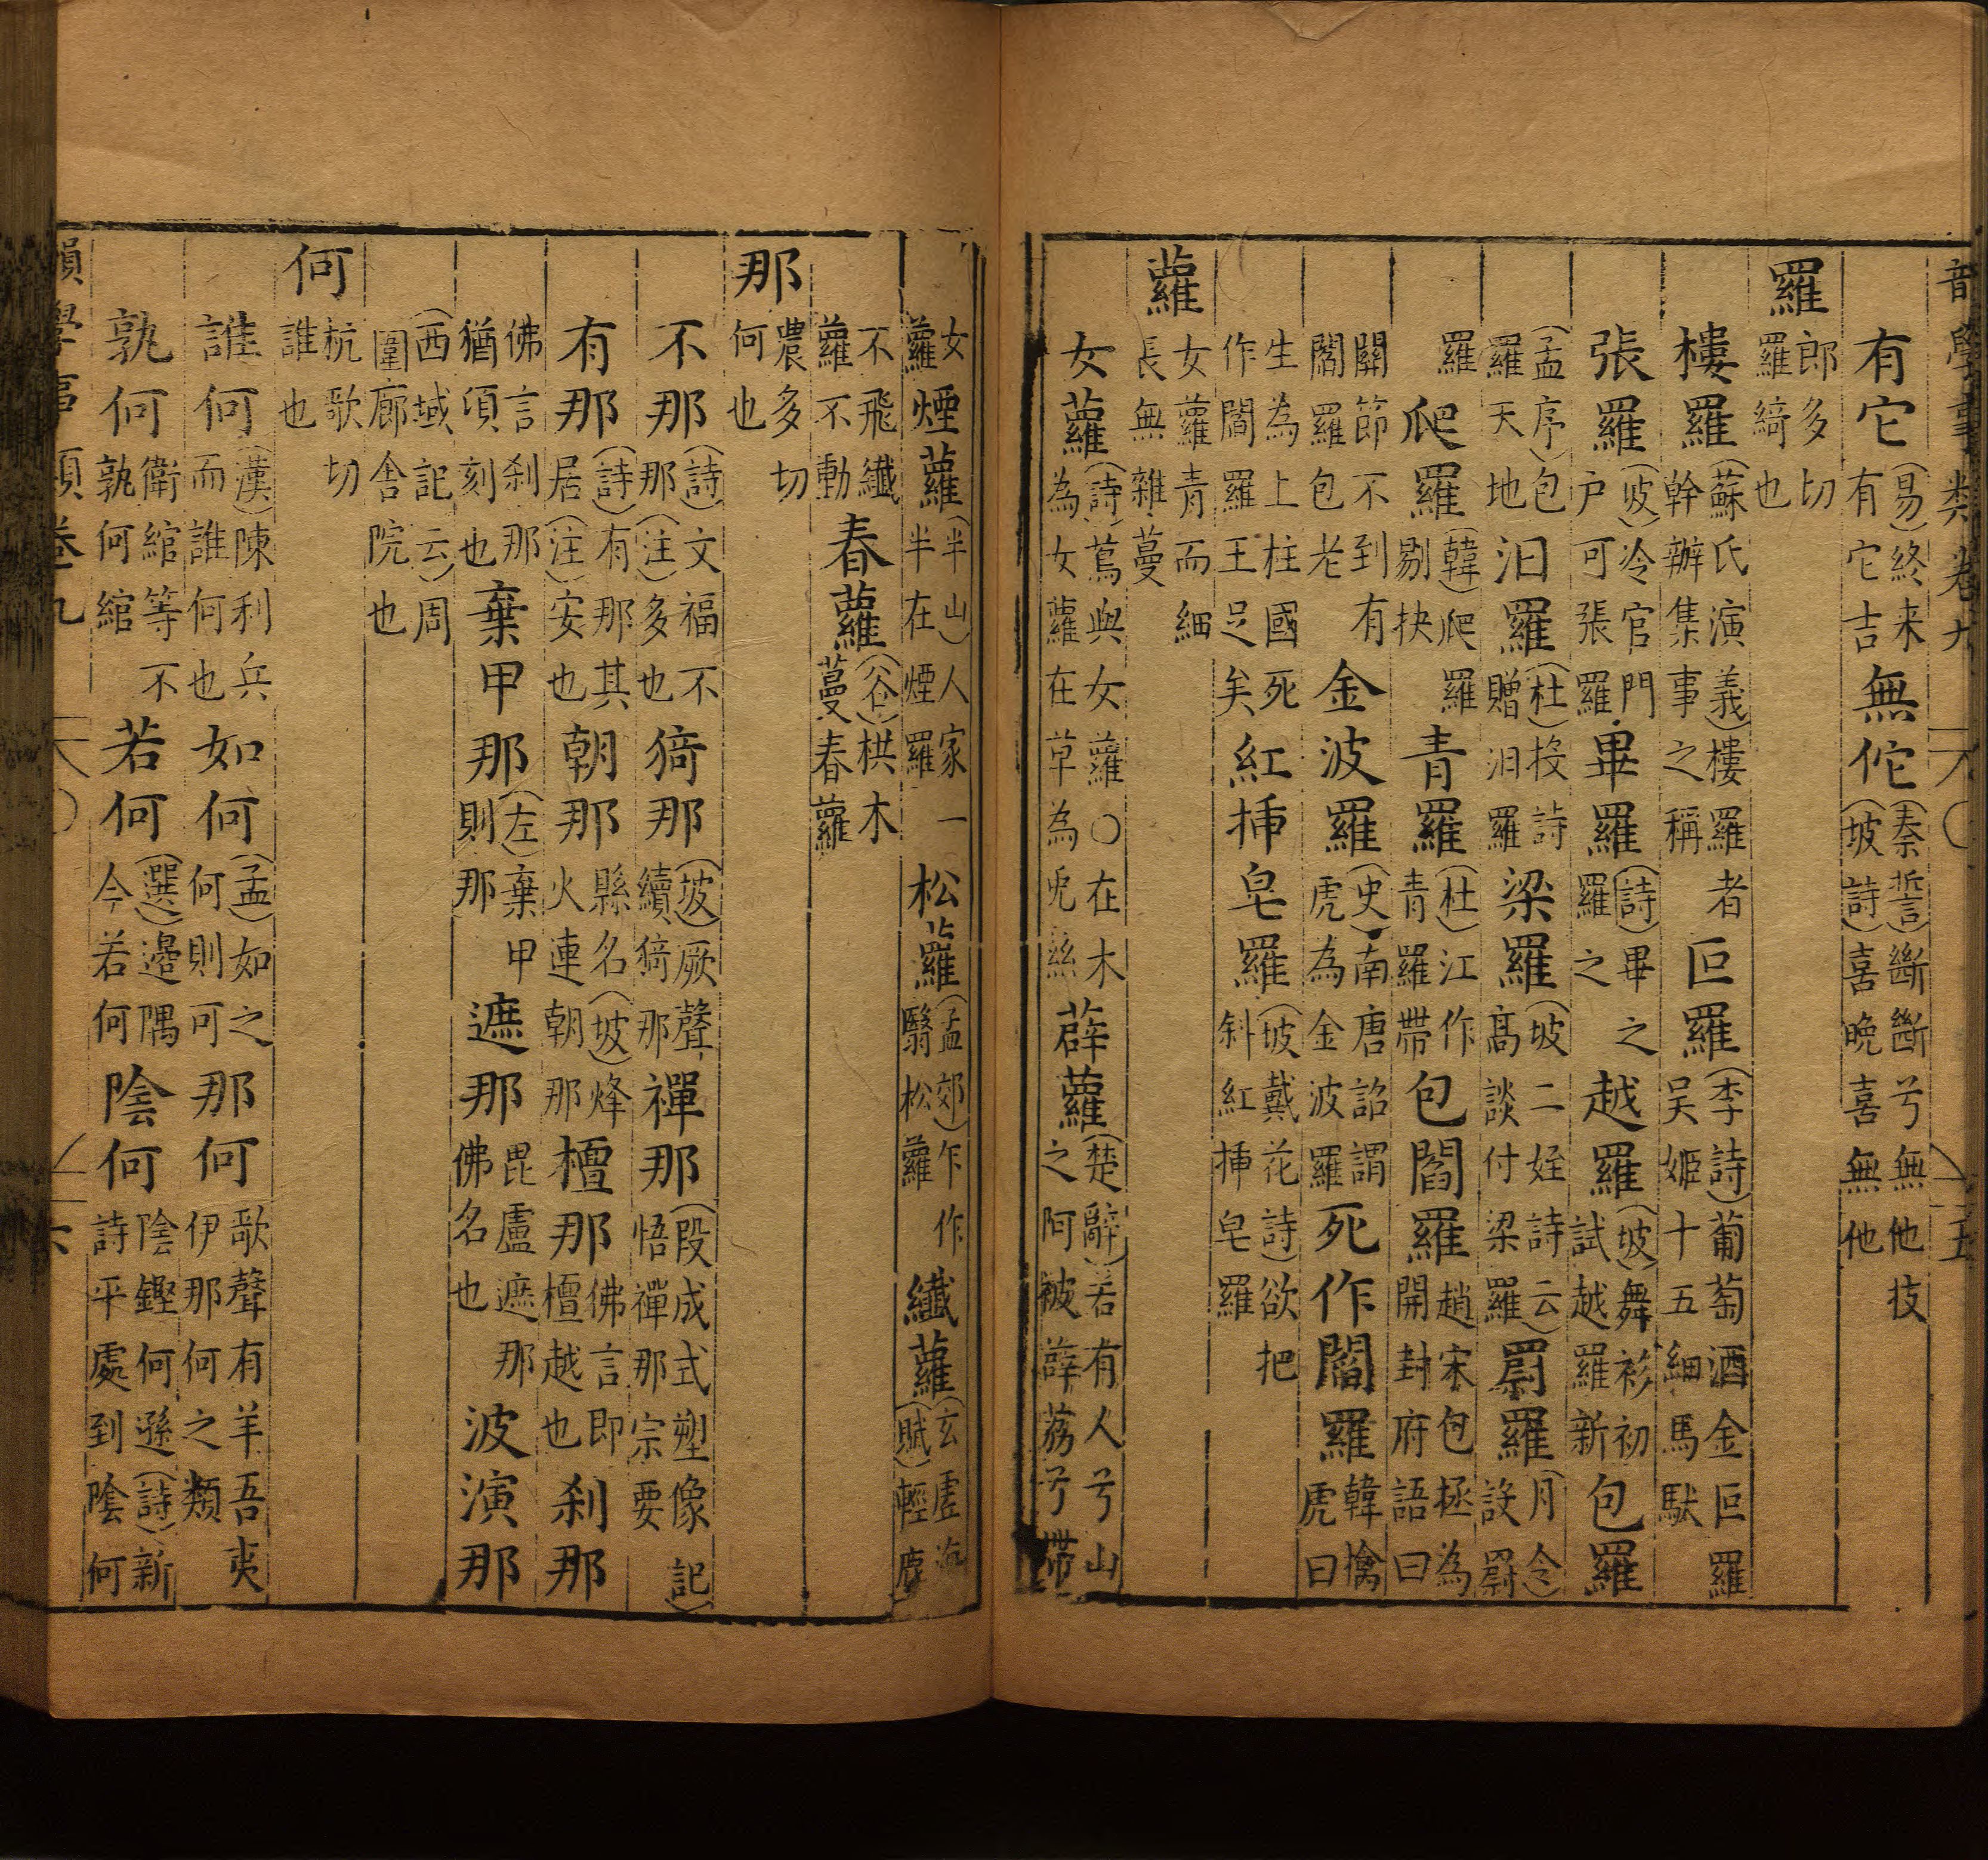 韻學事類卷九 五
有它(易)終来有它吉 無佗(秦誓)斷斷兮無他技(坡詩)喜晚喜無他
羅 郎多切羅綺也
樓羅(蘇氏演義)樓羅者幹辦集事之稱 叵羅(李詩)葡萄酒金叵羅吴姬十五細馬馱
張羅(坡)冷官門户可張羅 畢羅(詩)畢之羅之 越羅(坡)舞衫初試越羅新 包羅
(孟序)包羅天地 汨羅(杜)投詩贈汨羅 梁羅(坡二姪詩云)高談付梁羅 罻羅(月令)設罻
羅 爬羅(韓)爬羅剔抉 青羅(杜)江作青羅帶 包閻羅 趙宋包拯為開封府語曰
關節不到有閻羅包老 金波羅(史)南唐詔謂虎為金波羅 死作閻羅 韓擒虎曰
生為上柱國死作閻羅王足矣 紅揷皂羅(坡戴花詩)欲把斜紅揷皂羅
蘿 女蘿青而細長無雜蔓
女蘿(詩)蔦與女蘿○在木為女蘿在草為兎絲 薜蘿(楚辭)若有人兮山之阿被薜荔兮帶
女蘿 煙蘿(半山)人家一半在煙羅 松蘿(孟郊)乍作翳松蘿 纖蘿(玄虛海賦)輕塵
不飛纖蘿不動 春蘿(谷)栱木蔓春蘿
那 農多切何也
不那(詩)文福不那(注)多也 猗那(坡)厥聲續猗那 禪那(段成式塑像記)悟禪那宗要
有那(詩)有那其居(注)安也 朝那 縣名(坡)烽火連朝那 檀那 佛言即檀越也 刹那
佛言刹那猶頃刻也 棄甲那(左)棄甲則那 遮那 毘盧遮那佛名也 波演那
(西域記云)周圍廊舍院也
何 杭歌切誰也
誰何(漢)陳利兵而誰何也 如何(孟)如之何則可 那何 歌聲有羊吾夷伊那何之類
孰何 衛綰等不孰何綰 若何(選)邉隅今若何 陰何 陰鏗何遜(詩)新詩平處到陰何
韻學事類卷九 六